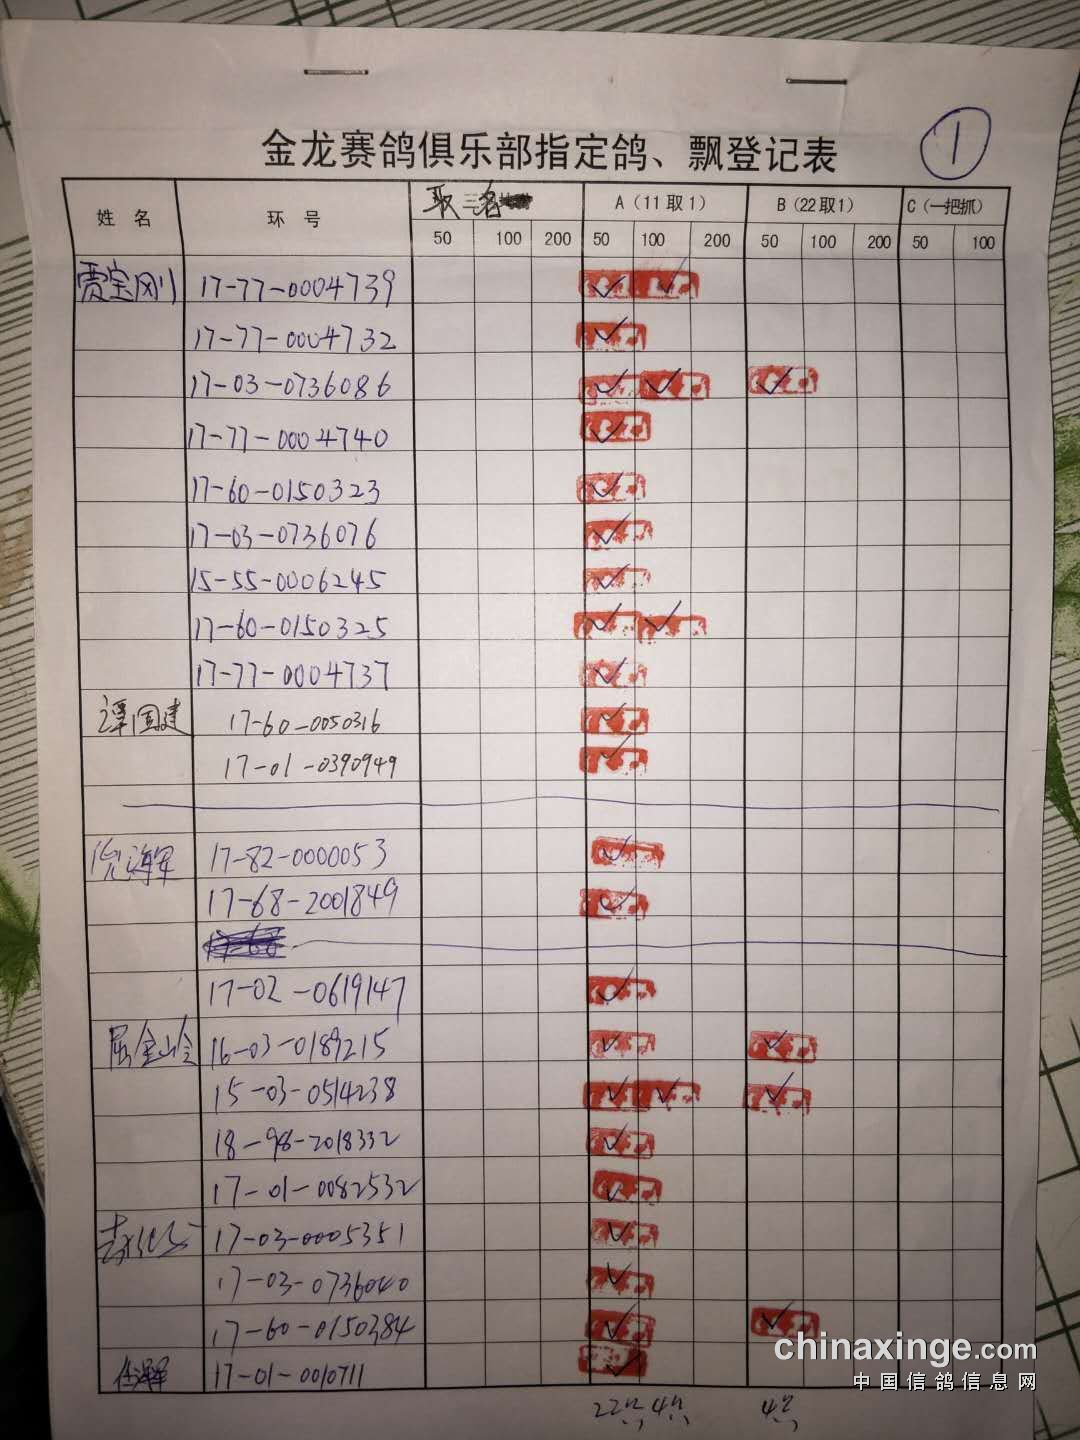 ①
金龙赛鸽俱乐部指定鸽、飘登记表
姓 名 环 号 取 三名 A（11取1） B（22取1） C（一把抓）
50 100 200 50 100 200 50 100 200 50 100
贾宝刚 17-77-0004739 ✓ ✓
17-77-0004732 ✓
17-03-0736086 ✓ ✓ ✓
17-77-0004740 ✓
17-60-0150323 ✓
17-03-0736076 ✓
15-55-0006245 ✓
17-60-0150325 ✓ ✓
17-77-0004737 ✓
谭国建 17-60-0050316 ✓
17-01-0390949 ✓
倪海军 17-82-0000053 ✓
17-68-2001849 ✓
17-02-0619147 ✓
屈金山 16-03-0189215 ✓ ✓
15-03-0514238 ✓ ✓ ✓
18-98-2018332 ✓
17-01-0082532 ✓
17-03-0005351 ✓
17-03-0736040 ✓
17-60-0150384 ✓ ✓
17-01-0010711 ✓
22只 4只 4只
chinaxinge.com
中国信鸽信息网